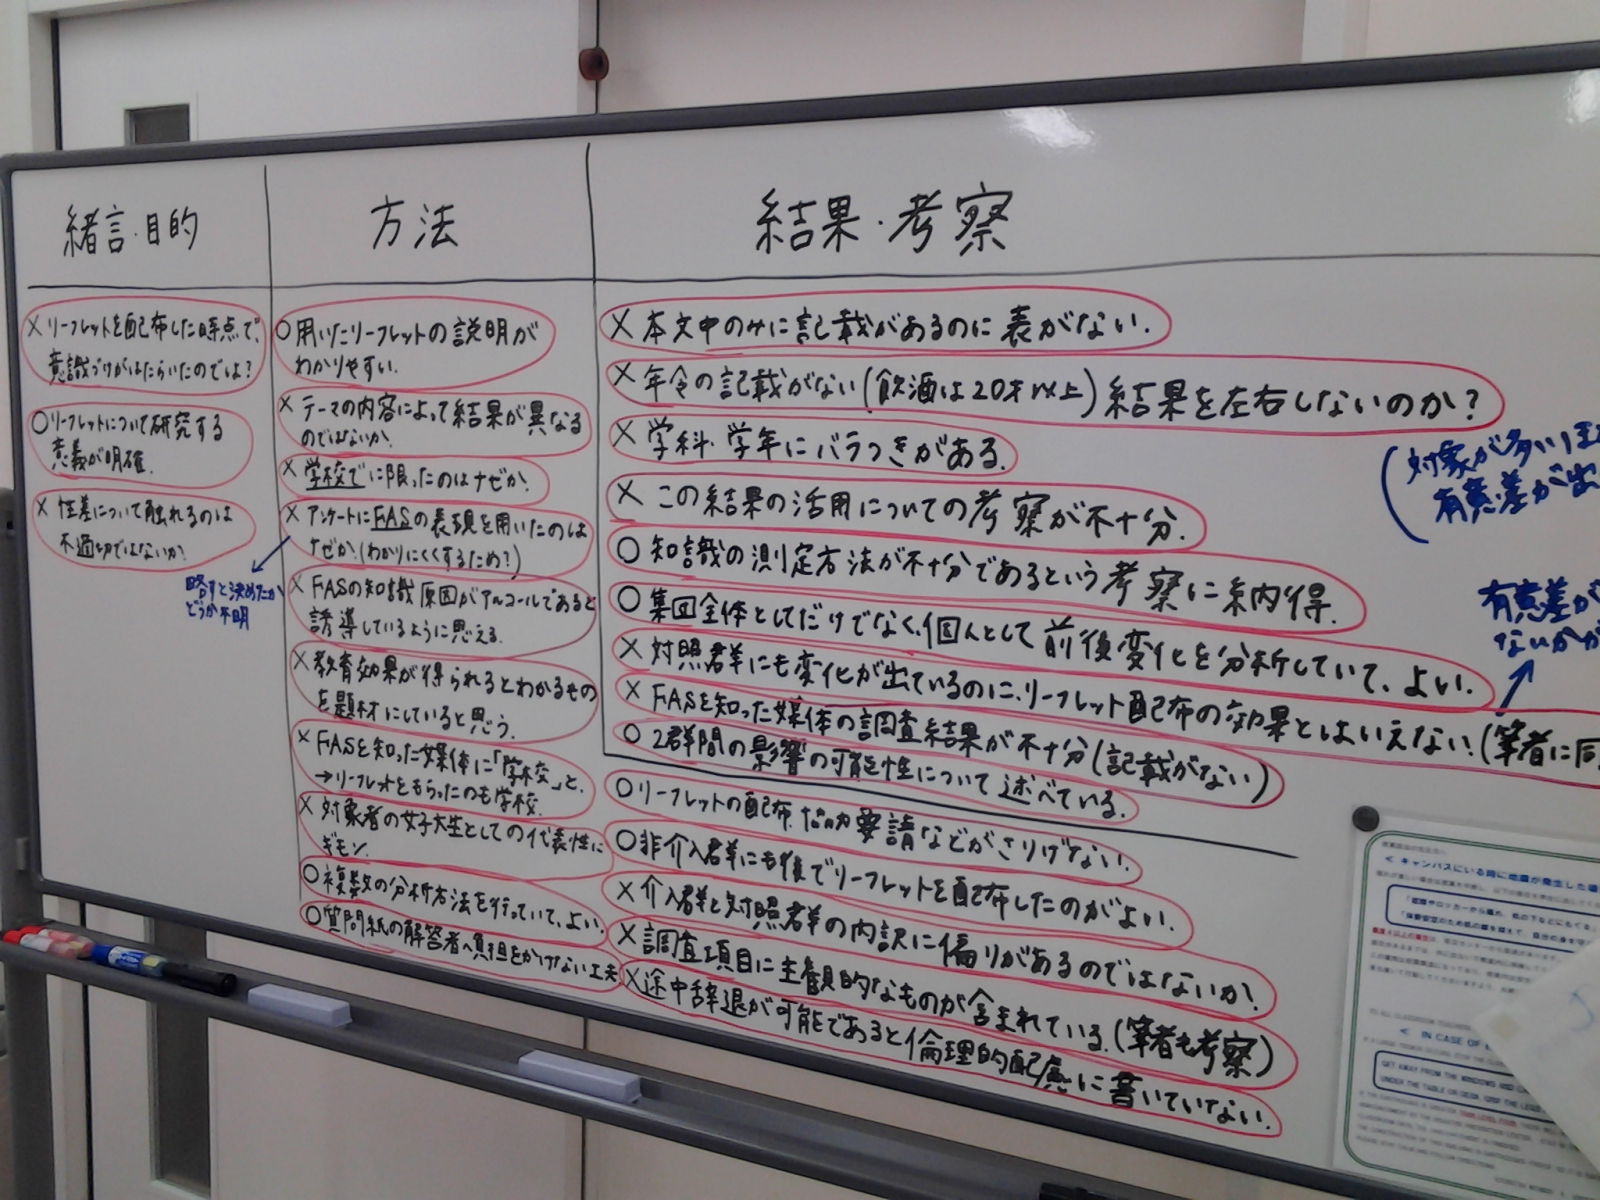 緒言・目的
×リーフレットを配布した時点で、
意識づけがはたらいたのでは?
○リーフレットについて研究する
意義が明確.
×性差について触れるのは
不適切ではないか?
方法
○用いたリーフレットの説明が
わかりやすい.
×テーマの内容によって結果が異なる
のではないか.
×学校でに限ったのはナゼか.
×アンケートにFASの表現を用いたのは
ナゼか.(わかりにくくするため?)
略すと決めたか
どうか不明
×FASの知識 原因がアルコールであると
誘導しているように思える.
×教育効果が得られるとわかるもの
を題材にしていると思う.
×FASを知った媒体に「学校」と、
→リーフレットをもらったのも学校.
×対象者の女子大生としての代表性に
ギモン.
○複数の分析方法を行っていて、よい.
○質問紙の解答者へ負担をかけない工夫
結果・考察
×本文中のみに記載があるのに表がない.
×年令の記載がない(飲酒は20才以上)結果を左右しないのか?
×学科・学年にバラつきがある.
×この結果の活用についての考察が不十分.
○知識の測定方法が不十分であるという考察に納得.
○集団全体としてだけでなく、個人として前後変化を分析していて、よい.
×対照群にも変化が出ているのに、リーフレット配布の効果とはいえない.(筆者に同
×FASを知った媒体の調査結果が不十分(記載がない)
○2群間の影響の可能性について述べている.
(対象が多いほ
有意差が出
有意差が
ないかが
○リーフレットの配布、協力要請などがさりげない.
○非介入群にも後でリーフレットを配布したのがよい.
×介入群と対照群の内訳に偏りがあるのではないか?
×調査項目に主観的なものが含まれている.(筆者も考察)
×途中辞退が可能であると倫理的配慮に書いていない.
< キャンパスにいる時に地震が発生した場
< IN CASE OF
GET AWAY FROM THE WINDOWS AND
UNDER THE TABLE OR DESK.